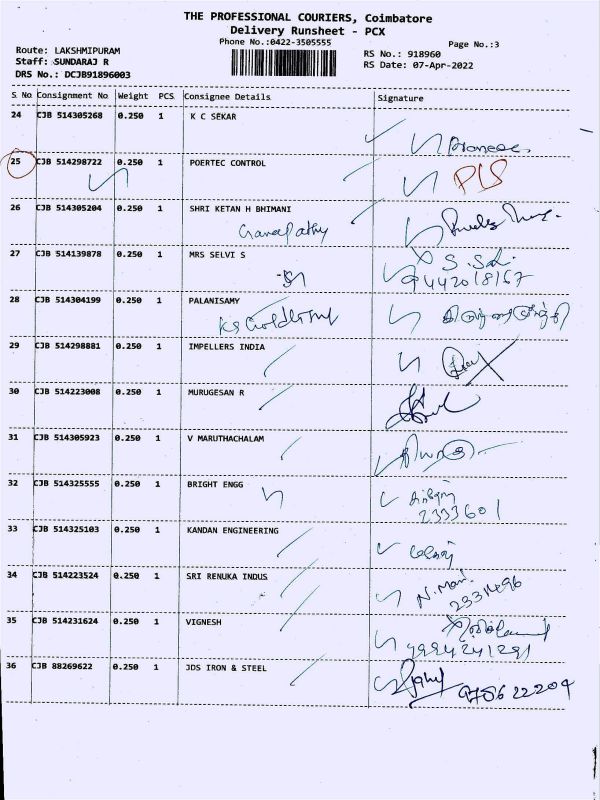 THE PROFESSIONAL COURIERS, Coimbatore
Delivery Runsheet - PCX
Phone No.:0422-3505555
Page No.:3
Route: LAKSHMIPURAM
RS No.: 918960
Staff: SUNDARAJ R
RS Date: 07-Apr-2022
DRS No.: DCJB91896003
S No Consignment No Weight PCS Consignee Details Signature
24 CJB 514305268 0.250 1 K C SEKAR
25 CJB 514298722 0.250 1 POERTEC CONTROL
26 CJB 514305204 0.250 1 SHRI KETAN H BHIMANI
Ganapathy
27 CJB 514139878 0.250 1 MRS SELVI S
9442018167
28 CJB 514304199 0.250 1 PALANISAMY
29 CJB 514298881 0.250 1 IMPELLERS INDIA
30 CJB 514223008 0.250 1 MURUGESAN R
31 CJB 514305923 0.250 1 V MARUTHACHALAM
32 CJB 514325555 0.250 1 BRIGHT ENGG
2333601
33 CJB 514325103 0.250 1 KANDAN ENGINEERING
34 CJB 514223524 0.250 1 SRI RENUKA INDUS
N. Mani
35 CJB 514231624 0.250 1 VIGNESH
36 CJB 88269622 0.250 1 JDS IRON & STEEL